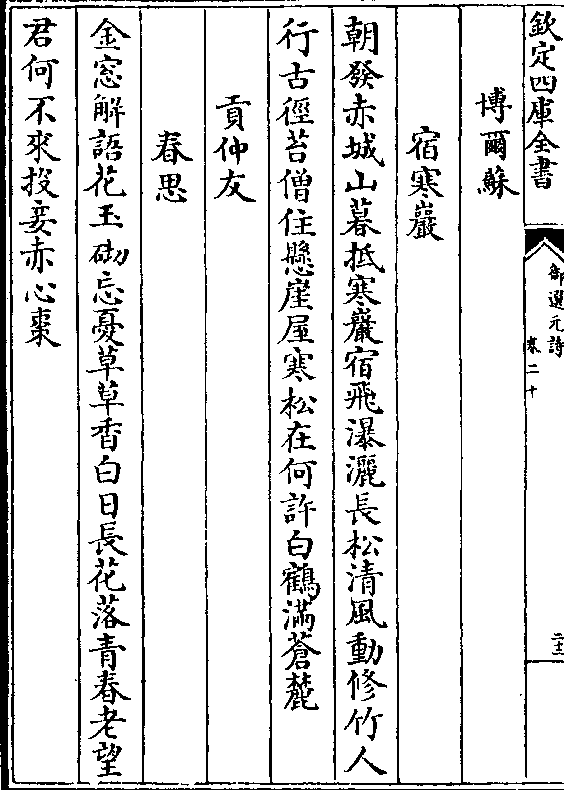 欽定四庫全書
御選元詩
卷二十
二十三
博爾蘇
宿寒巖
朝發赤城山暮抵寒巖宿飛瀑灑長松清風動修竹人
行古徑苔僧住懸崖屋寒松在何許白鶴滿蒼麓
貢仲友
春思
金窓解語花玉砌忘憂草草香白日長花落青春老望
君何不來投妾赤心棗